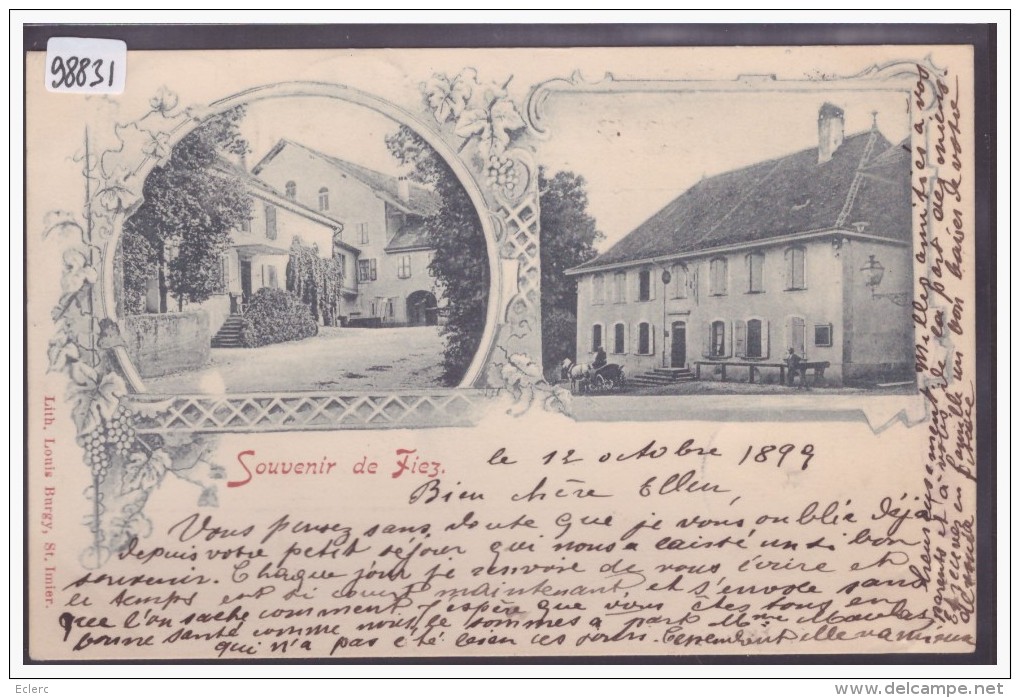 98831
Souvenir de Fiez.
le 12 octobre 1899
Bien chère Ellen,
Vous pensez sans doute que je vous oublie déjà
depuis votre petit séjour qui nous a laissé un si bon
souvenir. Chaque jour je renvoie de vous écrire et
le temps est si court maintenant, et s'envole sans
que l'on sache comment. J'espère que vous êtes tous en
bonne santé comme nous le sommes à part Mme
qui n'a pas été bien ces jours. elle va mieux
heureusement Mille amitiés à vos
parents et à vous de la part des miens.
en famille un bon baiser de votre
Lith. Louis Burgy, St. Imier.
Eclerc
www.delcampe.net